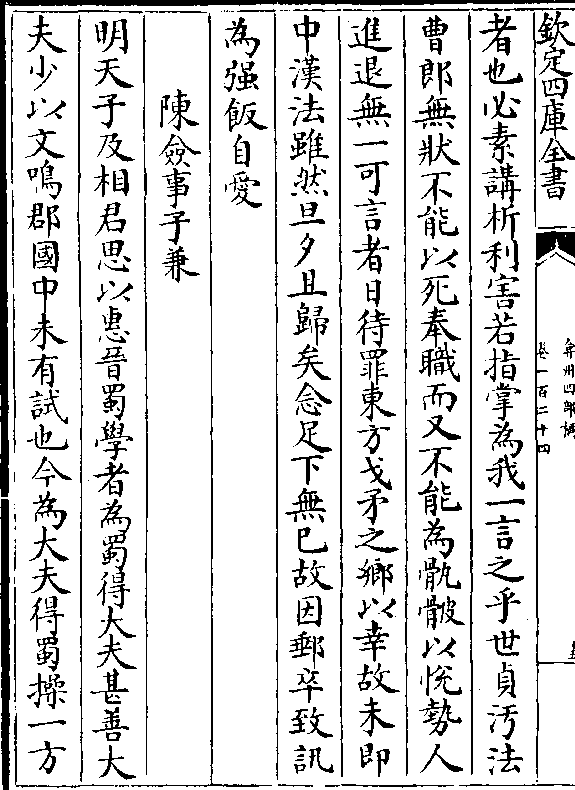 欽定四庫全書
弇州四部稿
卷一百二十四
者也必素講析利害若指掌為我一言之乎世貞汚法
曹郎無狀不能以死奉職而又不能為骩骳以悅勢人
進退無一可言者日待罪東方戈矛之鄉以幸故未即
中漢法雖然旦夕且歸矣念足下無已故因郵卒致訊
為强飯自愛
陳僉事子兼
明天子及相君思以惠晉蜀學者為蜀得大夫甚善大
夫少以文鳴郡國中未有試也今為大夫得蜀操一方